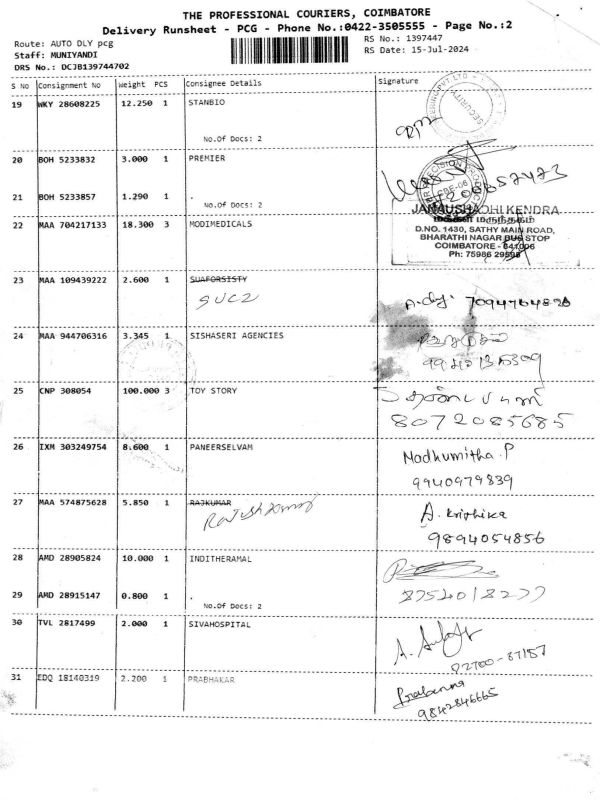 THE PROFESSIONAL COURIERS, COIMBATORE
Delivery Runsheet - PCG - Phone No.:0422-3505555 - Page No.:2
Route: AUTO DLY pcg
RS No.: 1397447
Staff: MUNIYANDI
RS Date: 15-Jul-2024
DRS No.: DCJB139744702
S No Consignment No Weight PCS Consignee Details Signature
19 WKY 28608225 12.250 1 STANBIO
SECURITY
No.Of Docs: 2
20 BOH 5233832 3.000 1 PREMIER
21 BOH 5233857 1.290 1 .
No.Of Docs: 2
22 MAA 704217133 18.300 3 MODIMEDICALS
JANAUSHADHI KENDRA
மக்கள் மருந்தகம்
D.NO. 1430, SATHY MAIN ROAD,
BHARATHI NAGAR BUS STOP
COIMBATORE - 641006
Ph: 75986 29598
23 MAA 109439222 2.600 1 SUAFORSISTY
SUCZ
24 MAA 944706316 3.345 1 SISHASERI AGENCIES
25 CNP 308054 100.000 3 TOY STORY
8072085685
26 IXM 303249754 8.600 1 PANEERSELVAM
Madhumitha.P
9940979839
27 MAA 574875628 5.850 1 RAJKUMAR
Rajeshkumar
A. Krithika
9894054856
28 AMD 28905824 10.000 1 INDITHERAMAL
29 AMD 28915147 0.800 1 .
8754018277
No.Of Docs: 2
30 TVL 2817499 2.000 1 SIVAHOSPITAL
31 EDQ 18140319 2.200 1 PRABHAKAR
Prasanna
9842846665